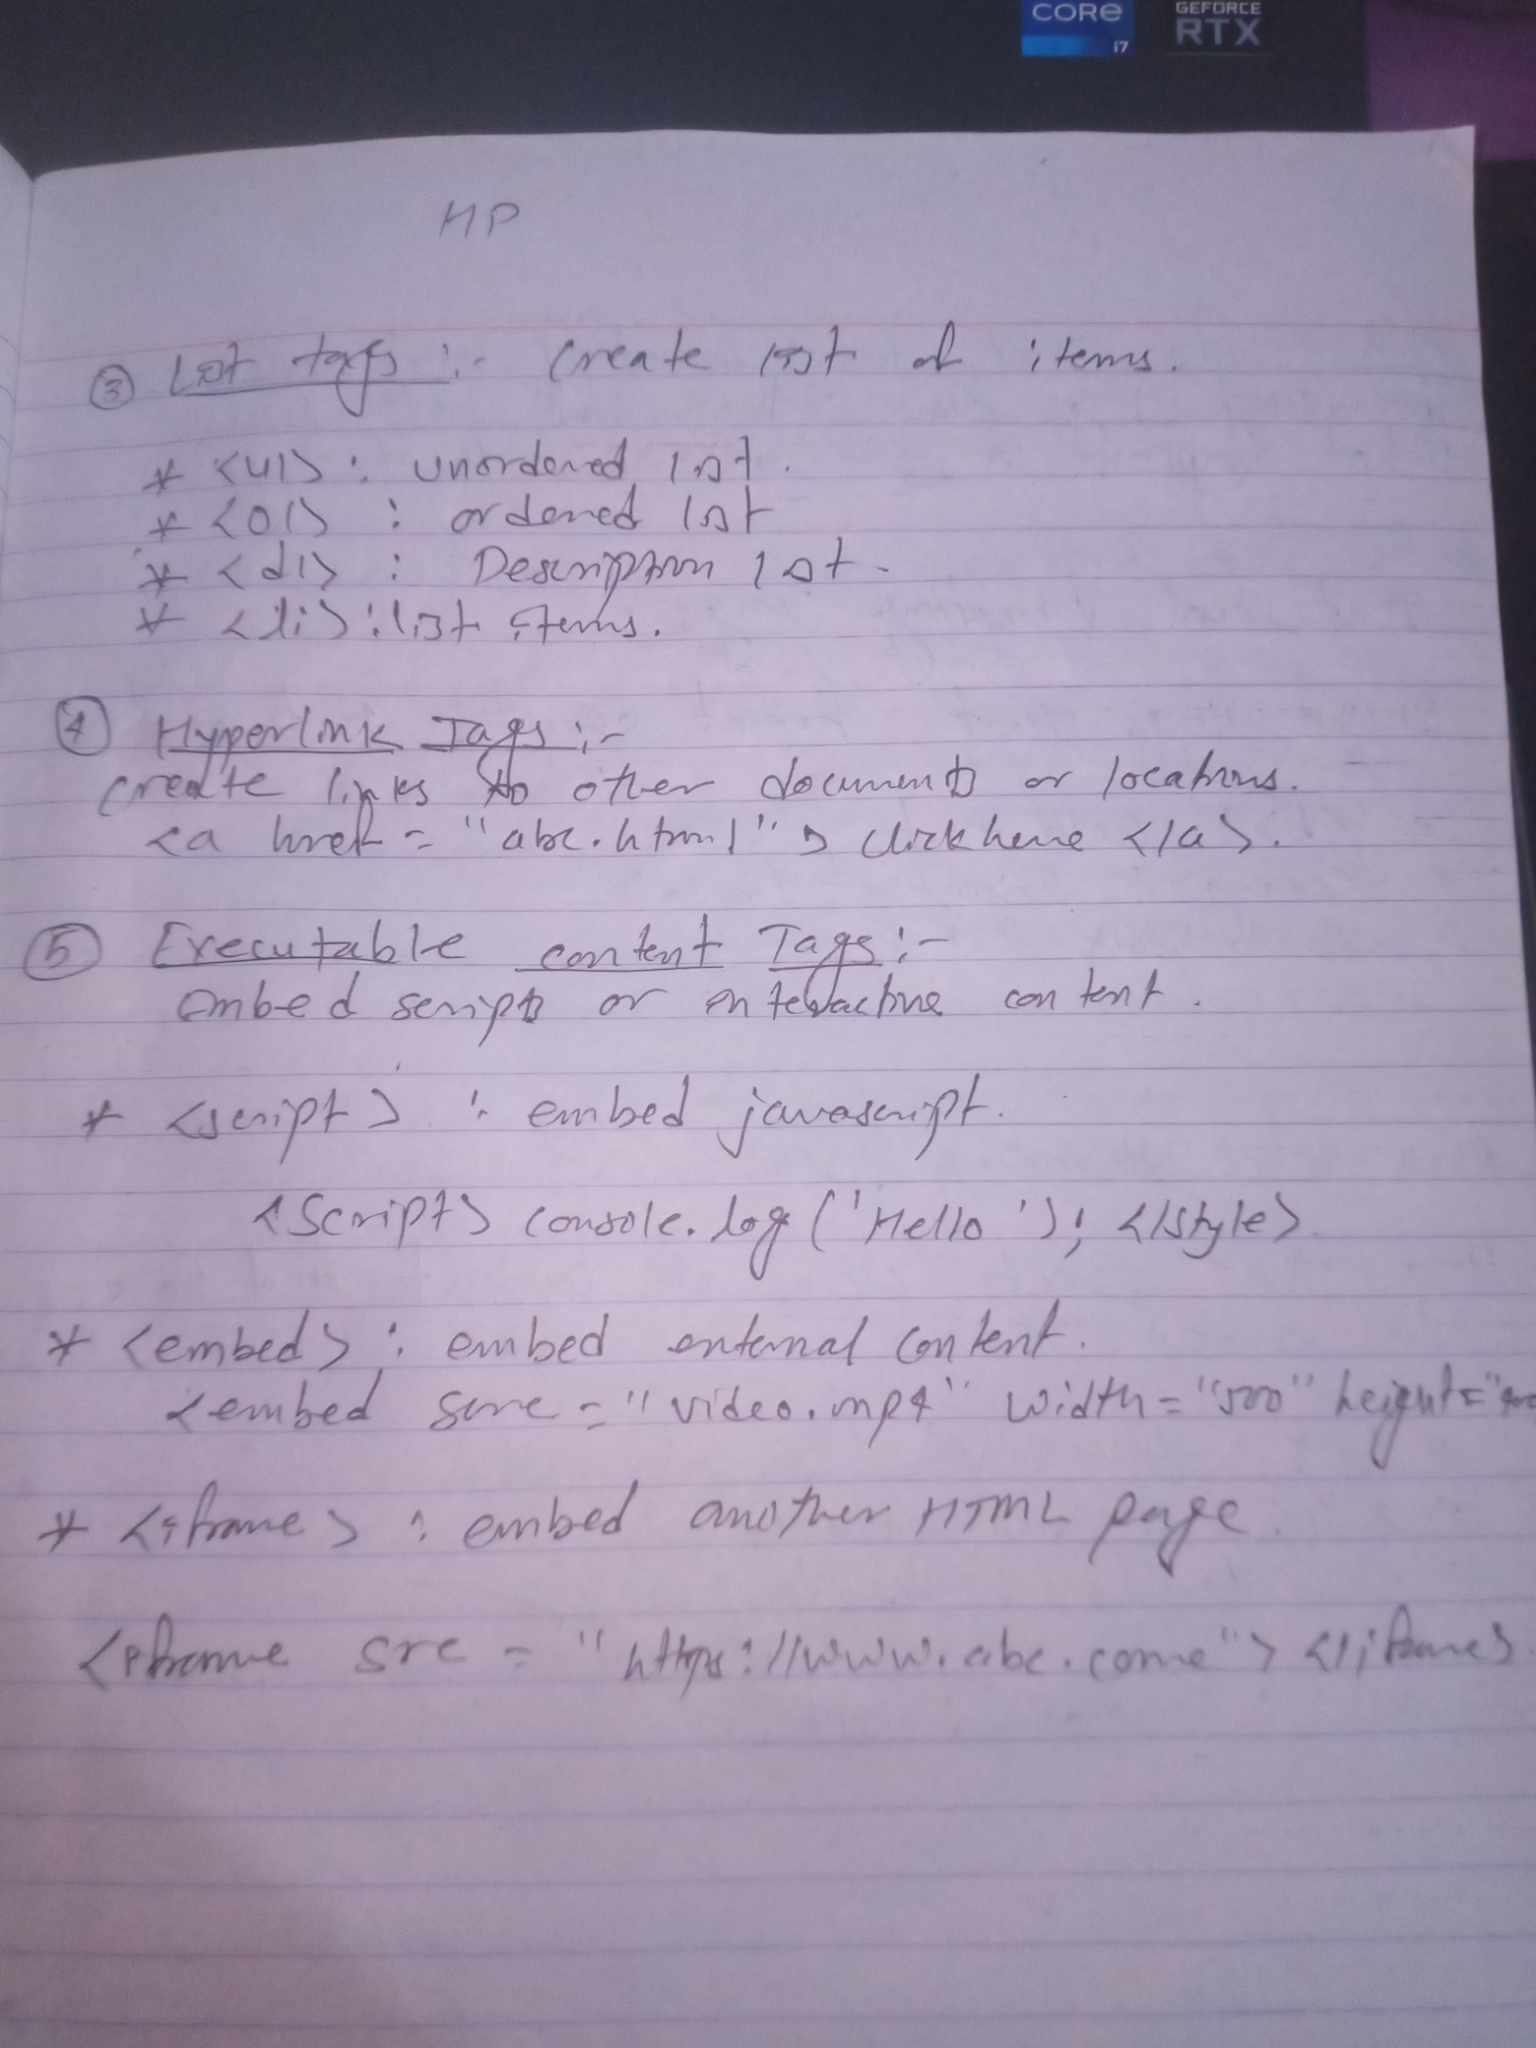 CORE
i7
GEFORCE
RTX
HP
③ List tags :- Create list of items.
* <ul> : unordered list.
* <ol> : ordered list
* <dl> : Description list.
* <li> : list items.
④ Hyperlink Tags :-
create links to other documents or locations.
<a href = "abc.html"> click here </a>.
⑤ Executable content Tags :-
embed scripts or interactive content.
* <script> : embed javascript.
<script> console.log ('Hello'); </style>
* <embed> : embed external content.
<embed source = "video.mp4" width = "500" height = "
* <iframe> : embed another HTML page.
<iframe src = "https://www.abc.come"> </iframe>